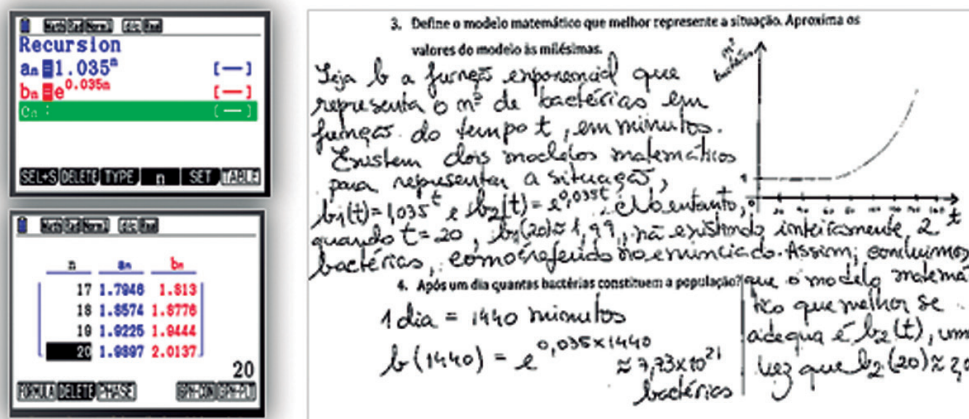 Math Rad Norm1 d/c Real
Recursion
an=1.035^n [—]
bn=e^0.035n [—]
cn: [—]
SEL+S DELETE TYPE n SET TABLE
Math Rad Norm1 d/c Real
n an bn
17 1.7946 1.813
18 1.8574 1.8776
19 1.9225 1.9444
20 1.9897 2.0137
20
FORMULA DELETE PHASE GPH-CON GPH-PLT
3. Define o modelo matemático que melhor represente a situação. Aproxima os
valores do modelo às milésimas.
Seja b a função exponencial que
representa o nº de bactérias em
função do tempo t, em minutos.
Existem dois modelos matemáticos
para representar a situação,
b1(t)=1,035^t e b2(t)=e^0,035t. No entanto,
quando t=20, b1(20)≈1,99, não existindo inteiramente, 2
bactérias, como referido no enunciado. Assim, concluimos
que o modelo matemá
tico que melhor se
adequa é b2(t), uma
vez que b2(20)≈2,0
nº
bactérias
1
t
4. Após um dia quantas bactérias constituem a população?
1 dia = 1440 minutos
b(1440) = e^0,035×1440 ≈ 7,73×10^21
bactérias